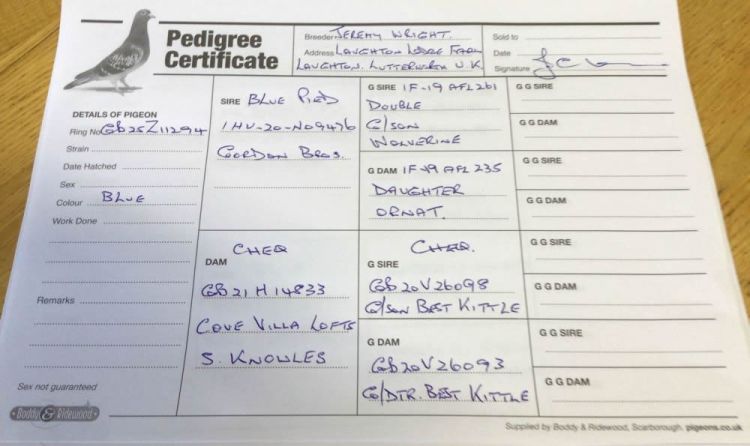 Pedigree
Certificate
Breeder JEREMY WRIGHT.
Address LAUGHTON LODGE FARM
LAUGHTON. LUTTERWORTH U.K.
Sold to
Date
Signature
DETAILS OF PIGEON
Ring No GB25Z11294
Strain
Date Hatched
Sex
Colour BLUE
Work Done
Remarks
Sex not guaranteed
Boddy & Ridewood
SIRE BLUE PIED
IHU-20-N09476
GORDON BROS.
CHEQ
DAM
GB21H14833
COVE VILLA LOFTS
S. KNOWLES
G SIRE IF-19 AFL261
DOUBLE
G/SON
WOLVERINE
G DAM IF-19 AFL 235
DAUGHTER
ORNAT.
CHEQ.
G SIRE
GB20V26098
G/SON BEST KITTLE
G DAM
GB20V26093
G/DTR. BEST KITTLE
G G SIRE
G G DAM
G G SIRE
G G DAM
G G SIRE
G G DAM
G G SIRE
G G DAM
Supplied by Boddy & Ridewood, Scarborough. pigeons.co.uk